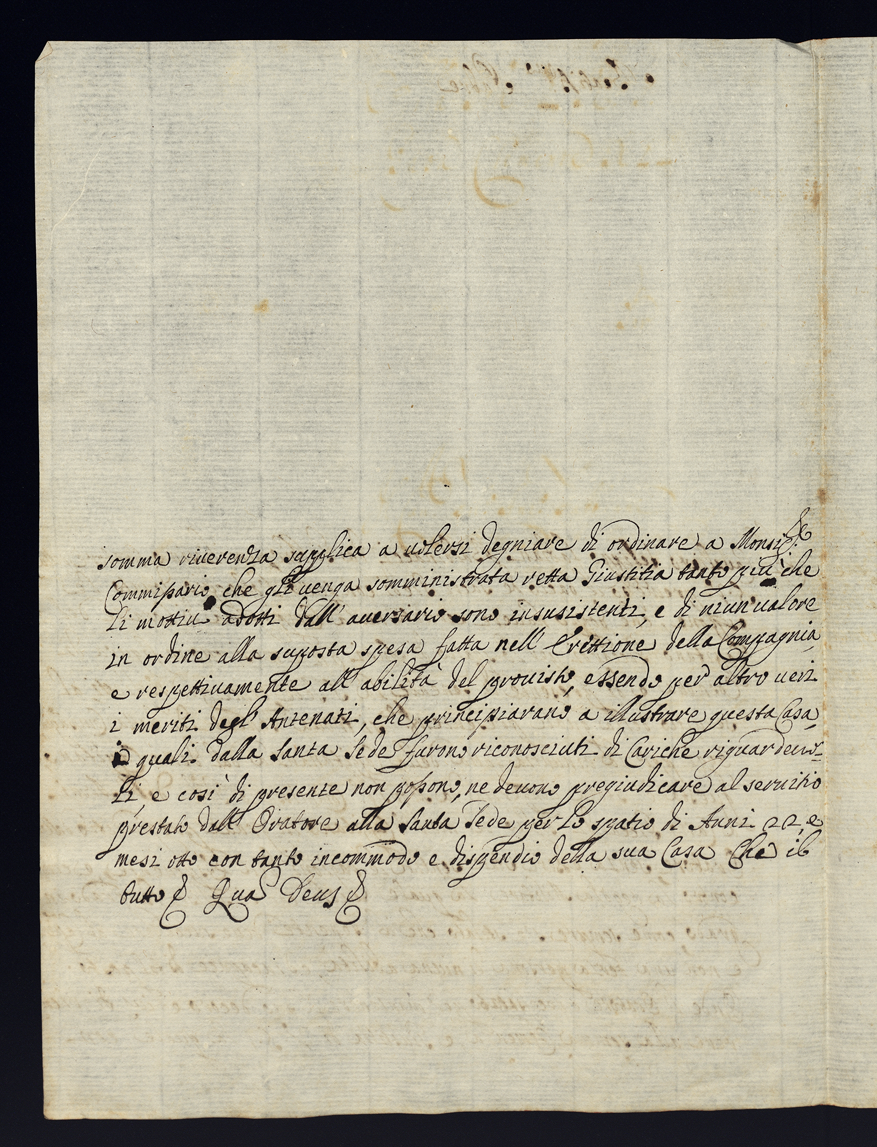 somma riverenza supplica a volersi degniare di ordinare a Monsig.re
Commissario che gli venga somministrata retta Giustitia tanto più che
li motivi adotti dall' aversario sono insusistenti, e di niun valore
in ordine alla suposta spesa fatta nell' Erettione della Compagnia,
e respettivamente all' abilità del provisto, essendo per altro veri
i meriti degl' Antenati, che principiarano a illustrare questa Casa,
i quali dalla Santa Sede furono riconosciuti di Cariche riguardevo=
li, e così di presente non possono, ne devono pregiudicare al servitio
prestato dall' Oratore alla Santa Sede per lo spatio di Anni 22 e
mesi otto con tanto incommodo e dispendio della sua Casa Che il
tutto Qua Deus